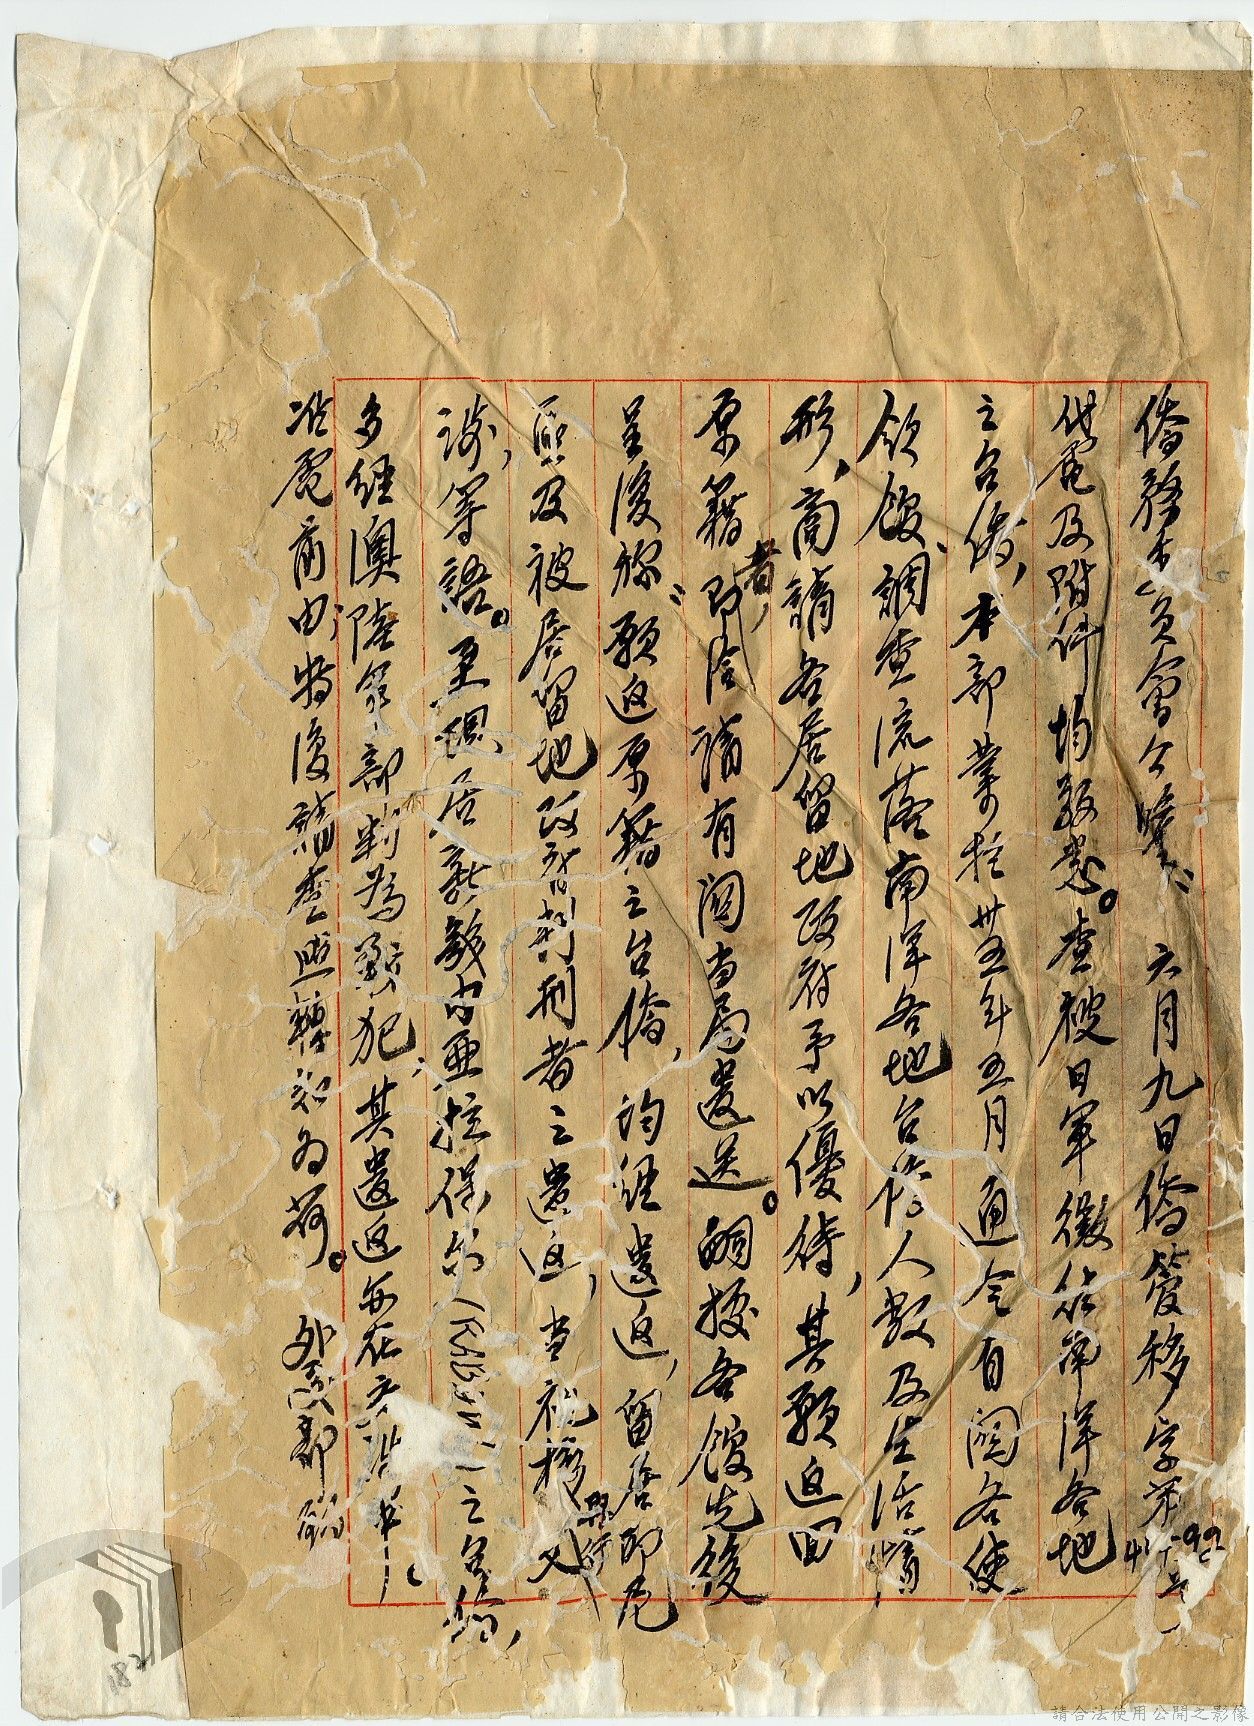 僑務委員會公鑒：六月九日僑管移字第
代電及附件均敬悉。查被日軍徵往南洋各地
之台僑，本部業於卅五年五月通令有關各使
領館，調查流落南洋各地台僑人數及生活情
形，商請各居留地政府予以優待，其願返回
原籍者，即洽請有關當局遣送。嗣據各館先後
呈復稱：願返原籍之台僑，均經遣返，留居印尼
區及被居留地政府判刑者之遣返，當視撥
談，等語。至現居新幾內亞拉保爾之台僑，
多經澳陸軍部判為戰犯，其遣返
准電前由，特復請查照轉知為荷。外交部
182
請合法使用公開之影像